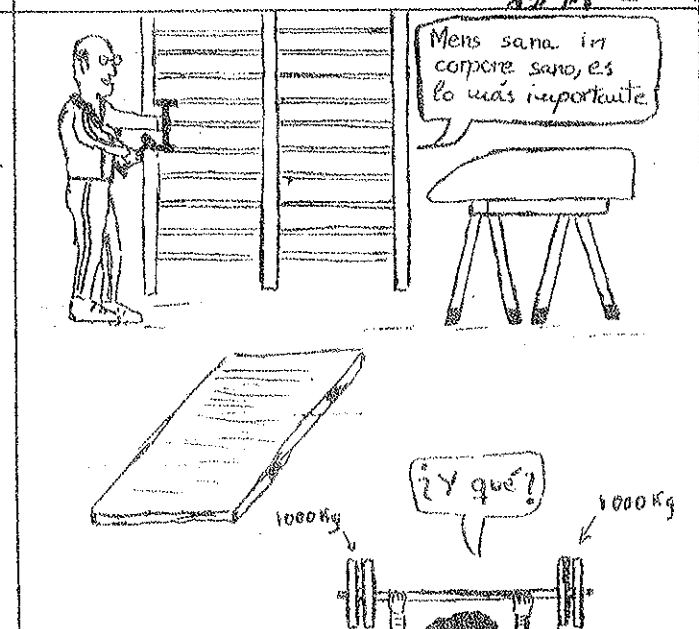 Mens sana in
corpore sano, es
lo más importante
¿Y qué?
1000 Kg
1000 Kg